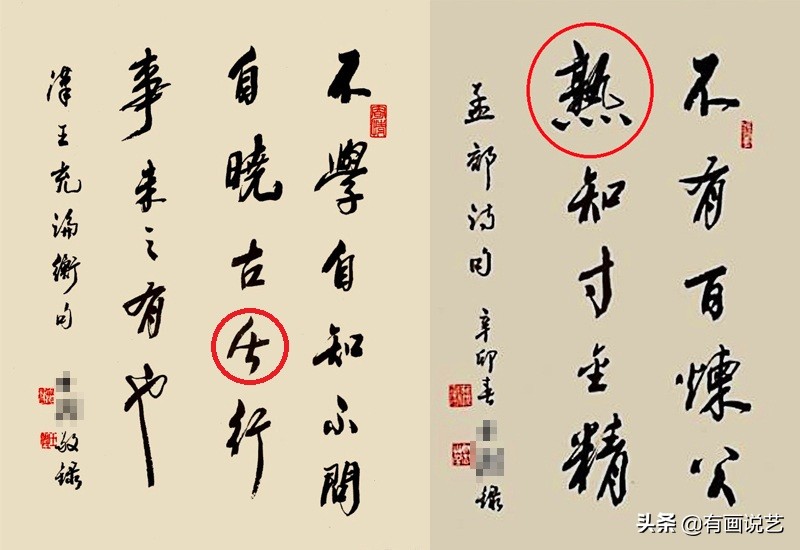 不學自知不問
自曉古今行
事未之有也
漢王充論衡句
敬錄
不有百煉火
熟知寸金精
孟郊詩句 辛卯春
錄
头条 @有画说艺